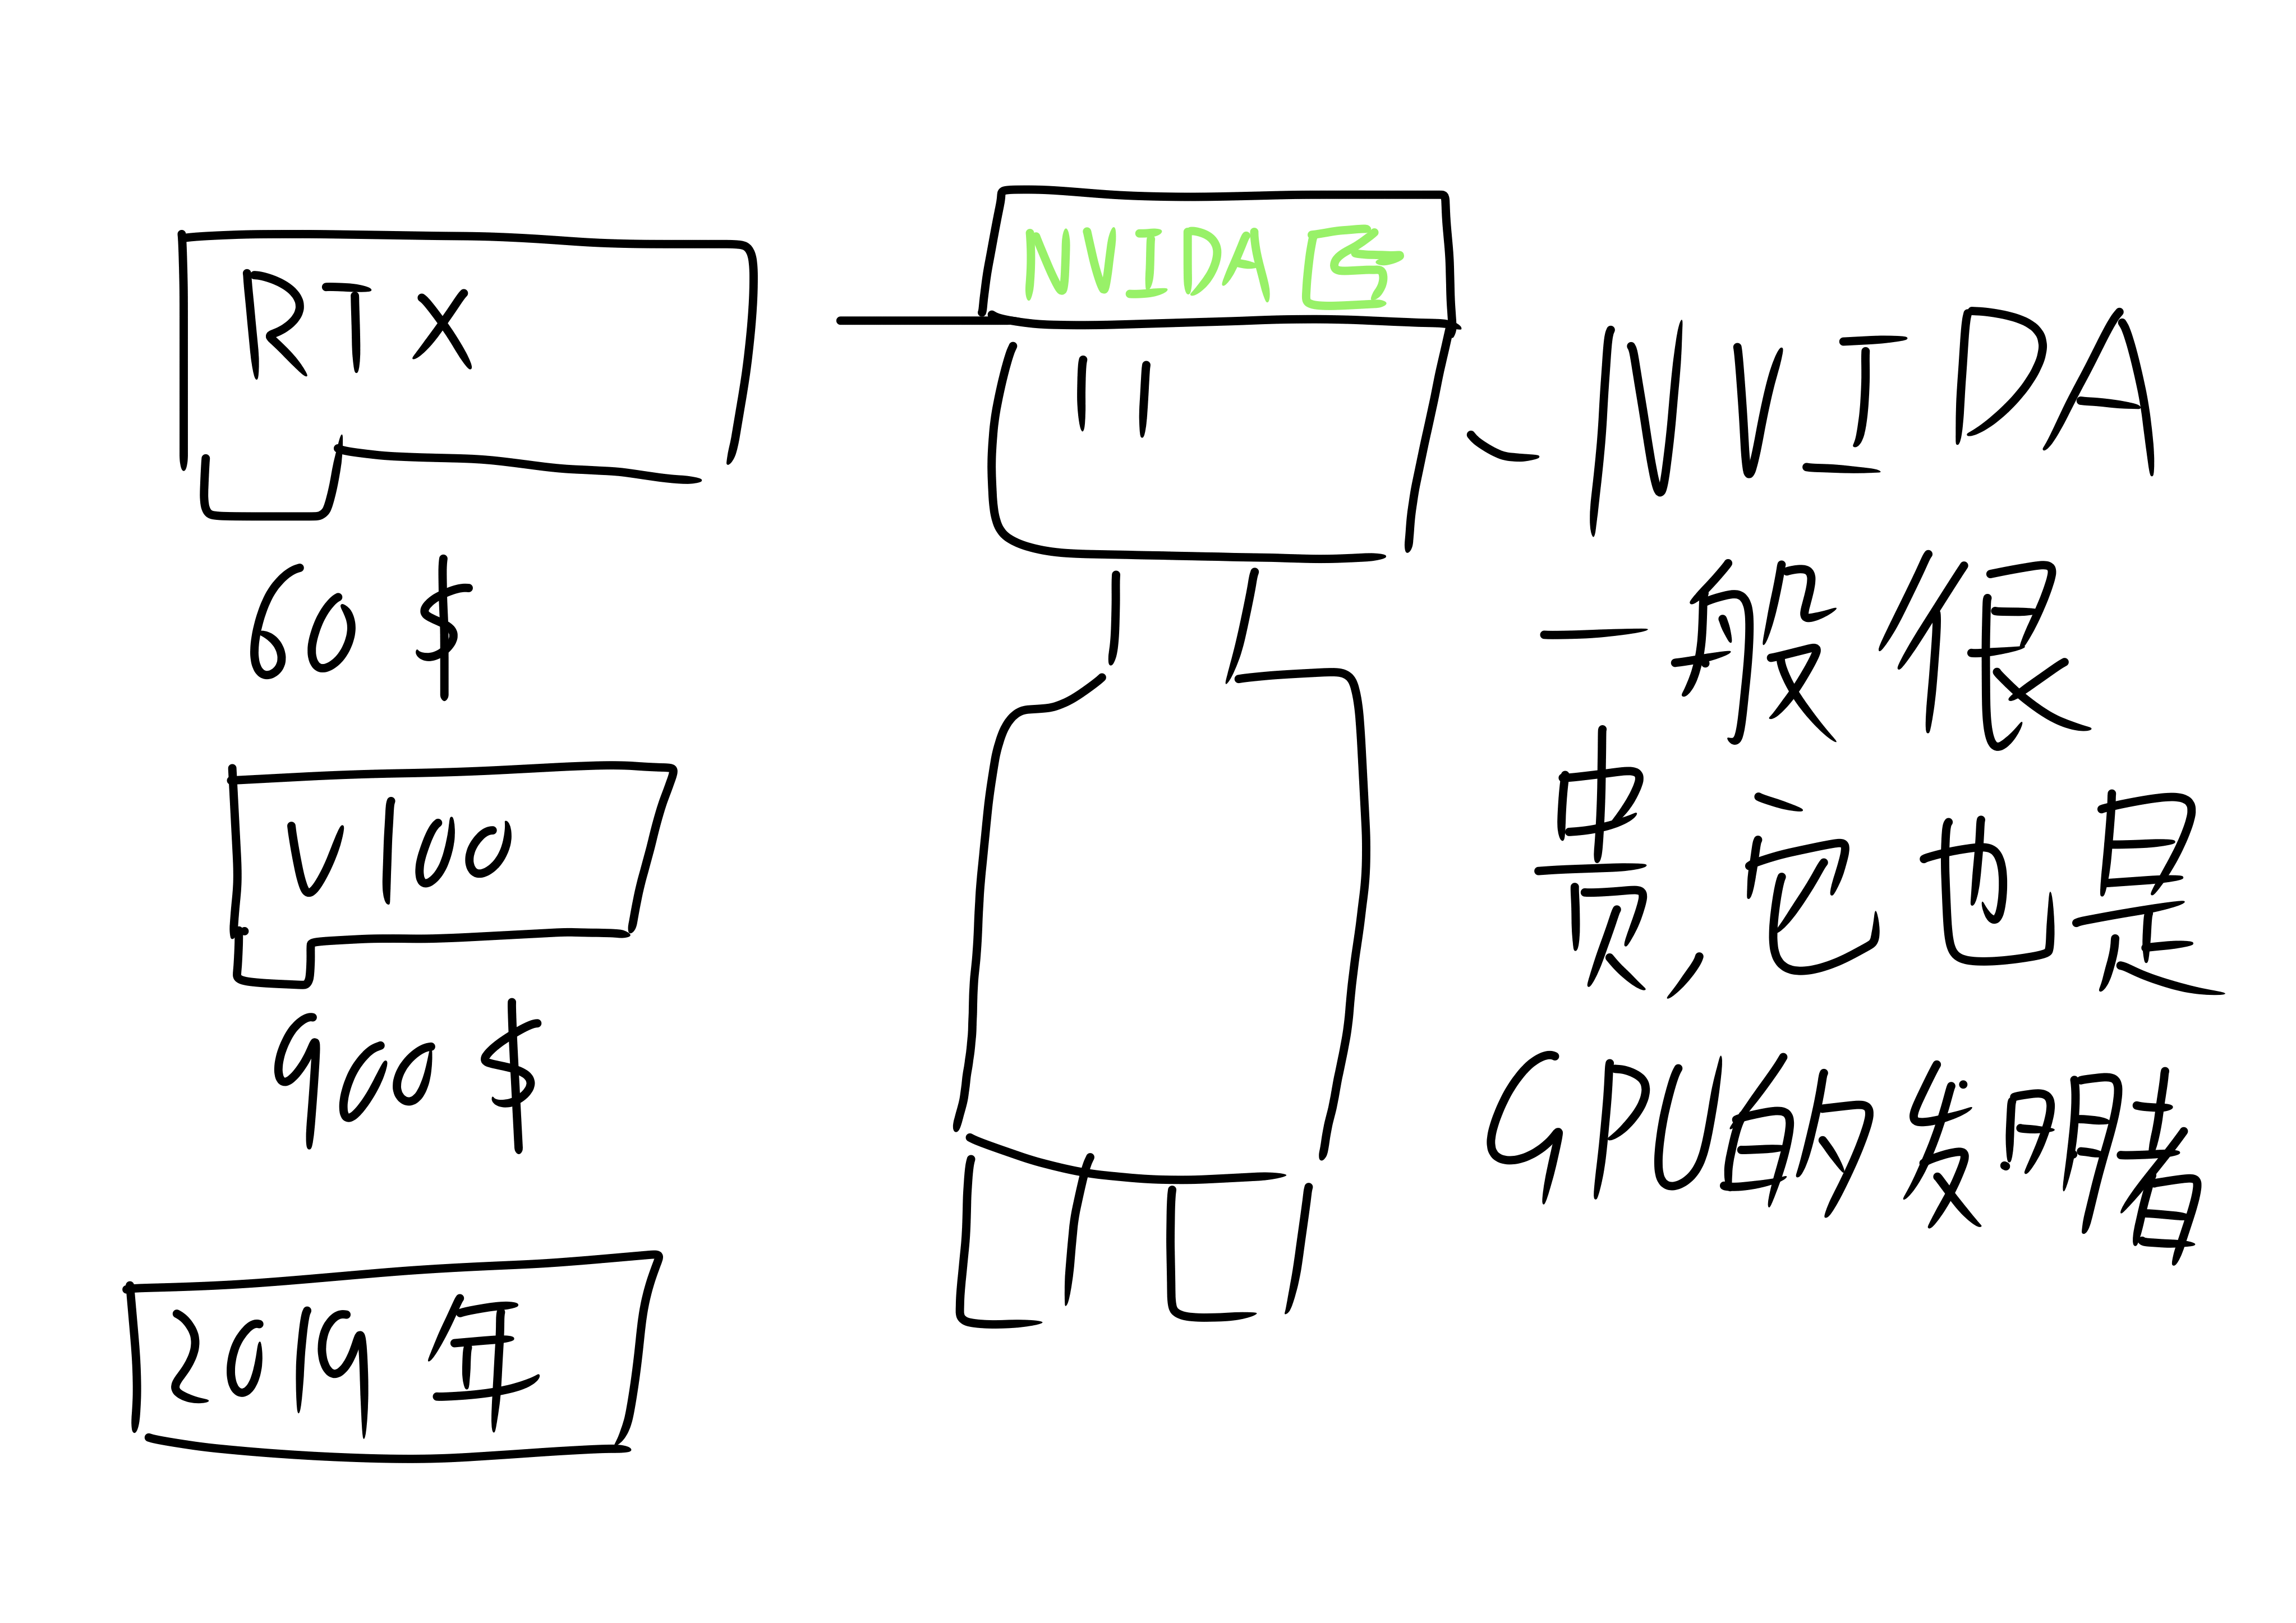 RTX
60 $
V100
900 $
2019 年
NVIDA
NVIDA
一般很
贵,它也是
GPU的发明者